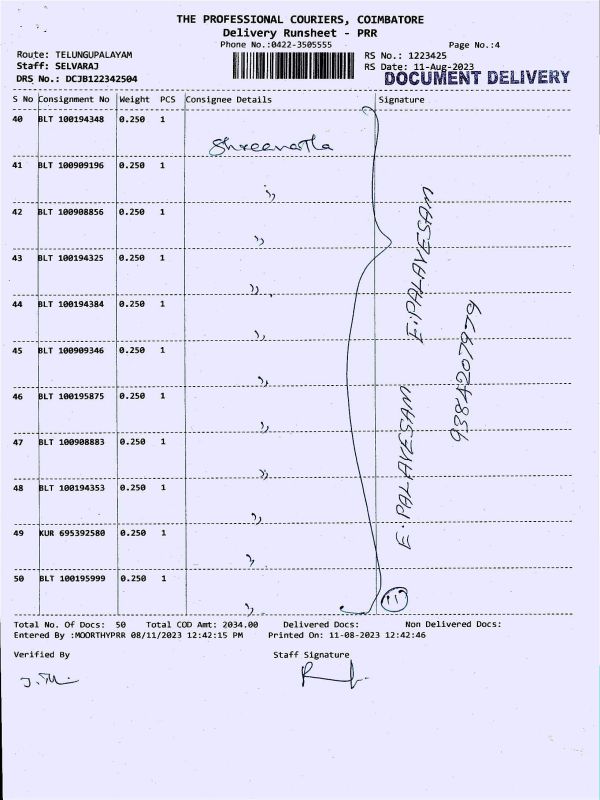 THE PROFESSIONAL COURIERS, COIMBATORE
Delivery Runsheet - PRR
Phone No.:0422-3505555
Page No.:4
Route: TELUNGUPALAYAM
RS No.: 1223425
Staff: SELVARAJ
RS Date: 11-Aug-2023
DRS No.: DCJB122342504
DOCUMENT DELIVERY
S No Consignment No Weight PCS Consignee Details Signature
40 BLT 100194348 0.250 1
Shreenatha
41 BLT 100909196 0.250 1
,,
42 BLT 100908856 0.250 1
,,
43 BLT 100194325 0.250 1
,,
44 BLT 100194384 0.250 1
,,
45 BLT 100909346 0.250 1
,,
46 BLT 100195875 0.250 1
,,
47 BLT 100908883 0.250 1
,,
48 BLT 100194353 0.250 1
,,
49 KUR 695392580 0.250 1
,,
50 BLT 100195999 0.250 1
,,
E.PALAVESAM
E.PALAVESAM
9384207979
11
Total No. Of Docs: 50 Total COD Amt: 2034.00 Delivered Docs: Non Delivered Docs:
Entered By :MOORTHYPRR 08/11/2023 12:42:15 PM Printed On: 11-08-2023 12:42:46
Verified By Staff Signature